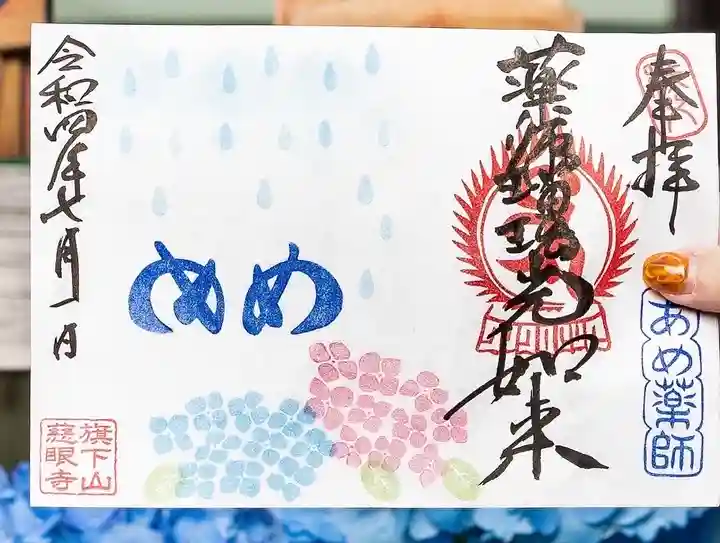 奉拝
あめ薬師
薬師瑠璃光如来
め め
令和四年七月一日
旗下山
慈眼寺